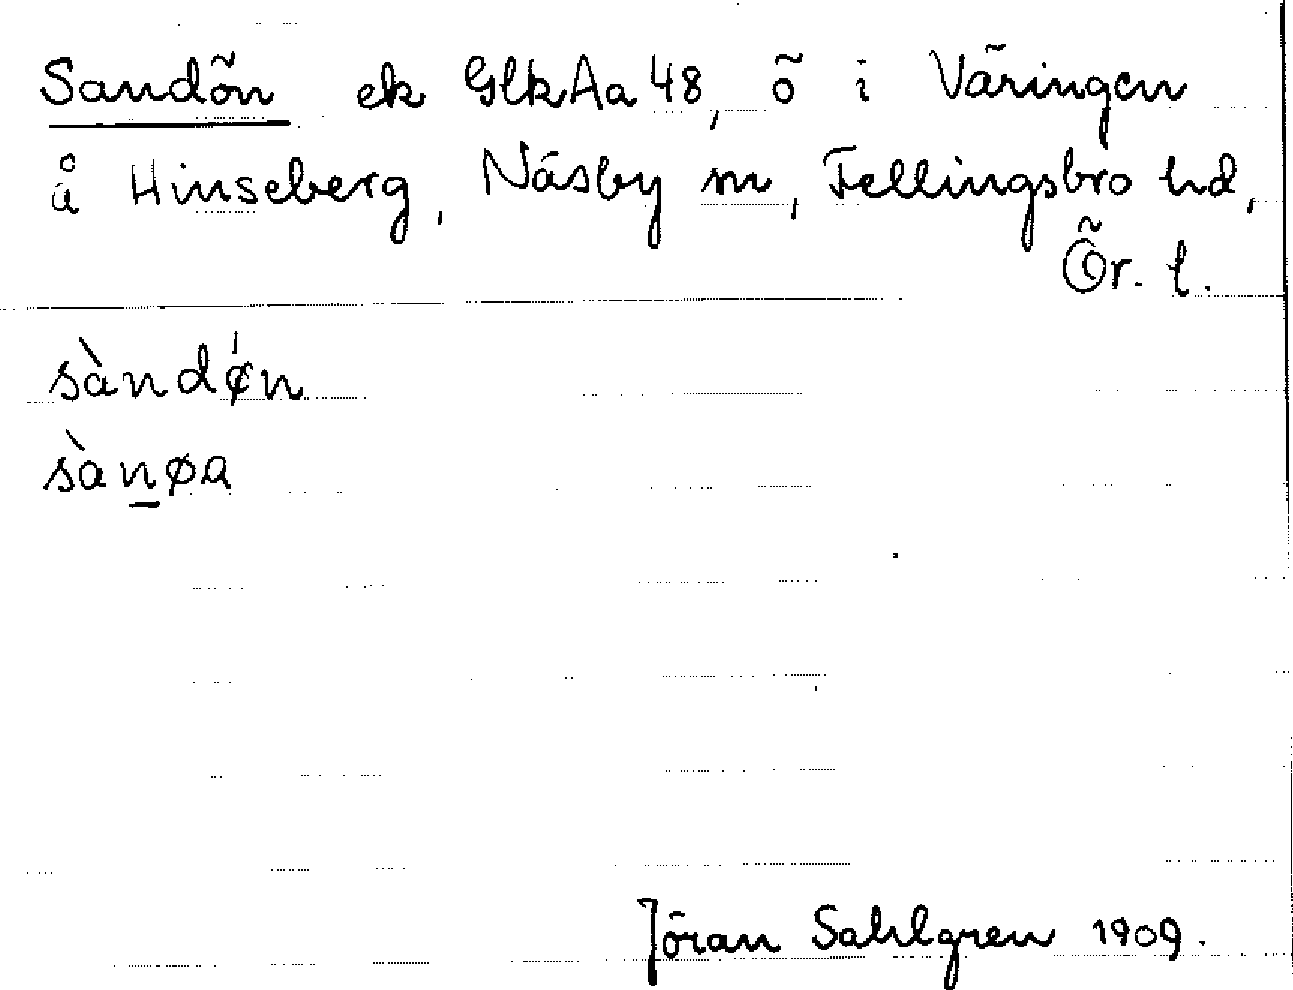 Sandön ek GlkAa 48, ö i Väringen
å Hinseberg, Näsby sn, Fellingsbro hd,
Ör. l.
sàndǿn
sàn̲øa
Jöran Sahlgren 1909.